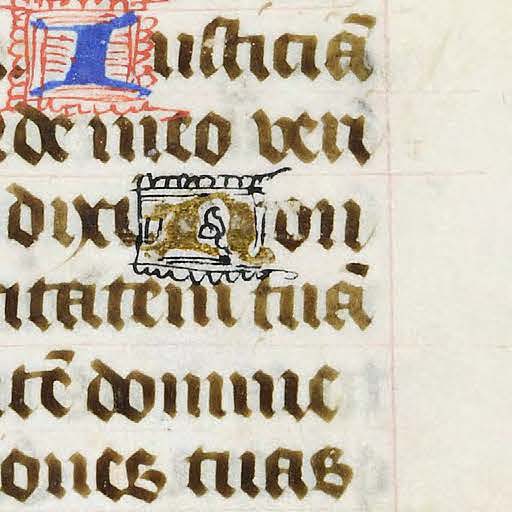 Iusticiā
de meo veri
dixi Non
itatem tuā
tē domine
ones tuas